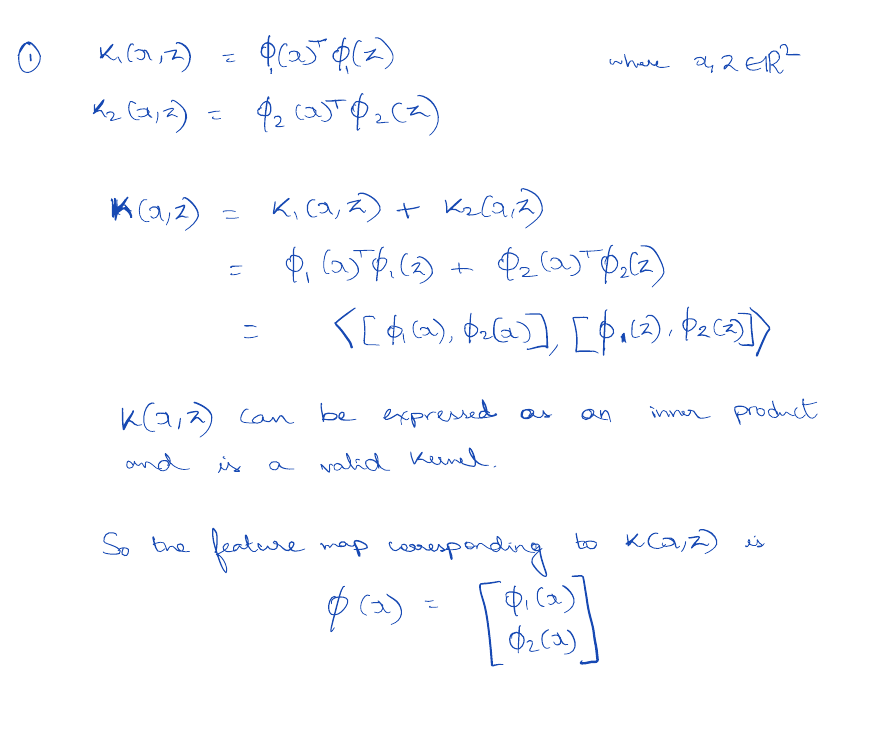 ① K₁(x,z) = ϕ₁(x)ᵀϕ₁(z) where x, z ∈ ℝ²
K₂(x,z) = ϕ₂(x)ᵀϕ₂(z)
K(x,z) = K₁(x,z) + K₂(x,z)
= ϕ₁(x)ᵀϕ₁(z) + ϕ₂(x)ᵀϕ₂(z)
= ⟨[ϕ₁(x), ϕ₂(x)], [ϕ₁(z), ϕ₂(z)]⟩
K(x,z) can be expressed as an inner product
and is a valid kernel.
So the feature map corresponding to K(x,z) is
ϕ(x) = [ϕ₁(x)
ϕ₂(x)]